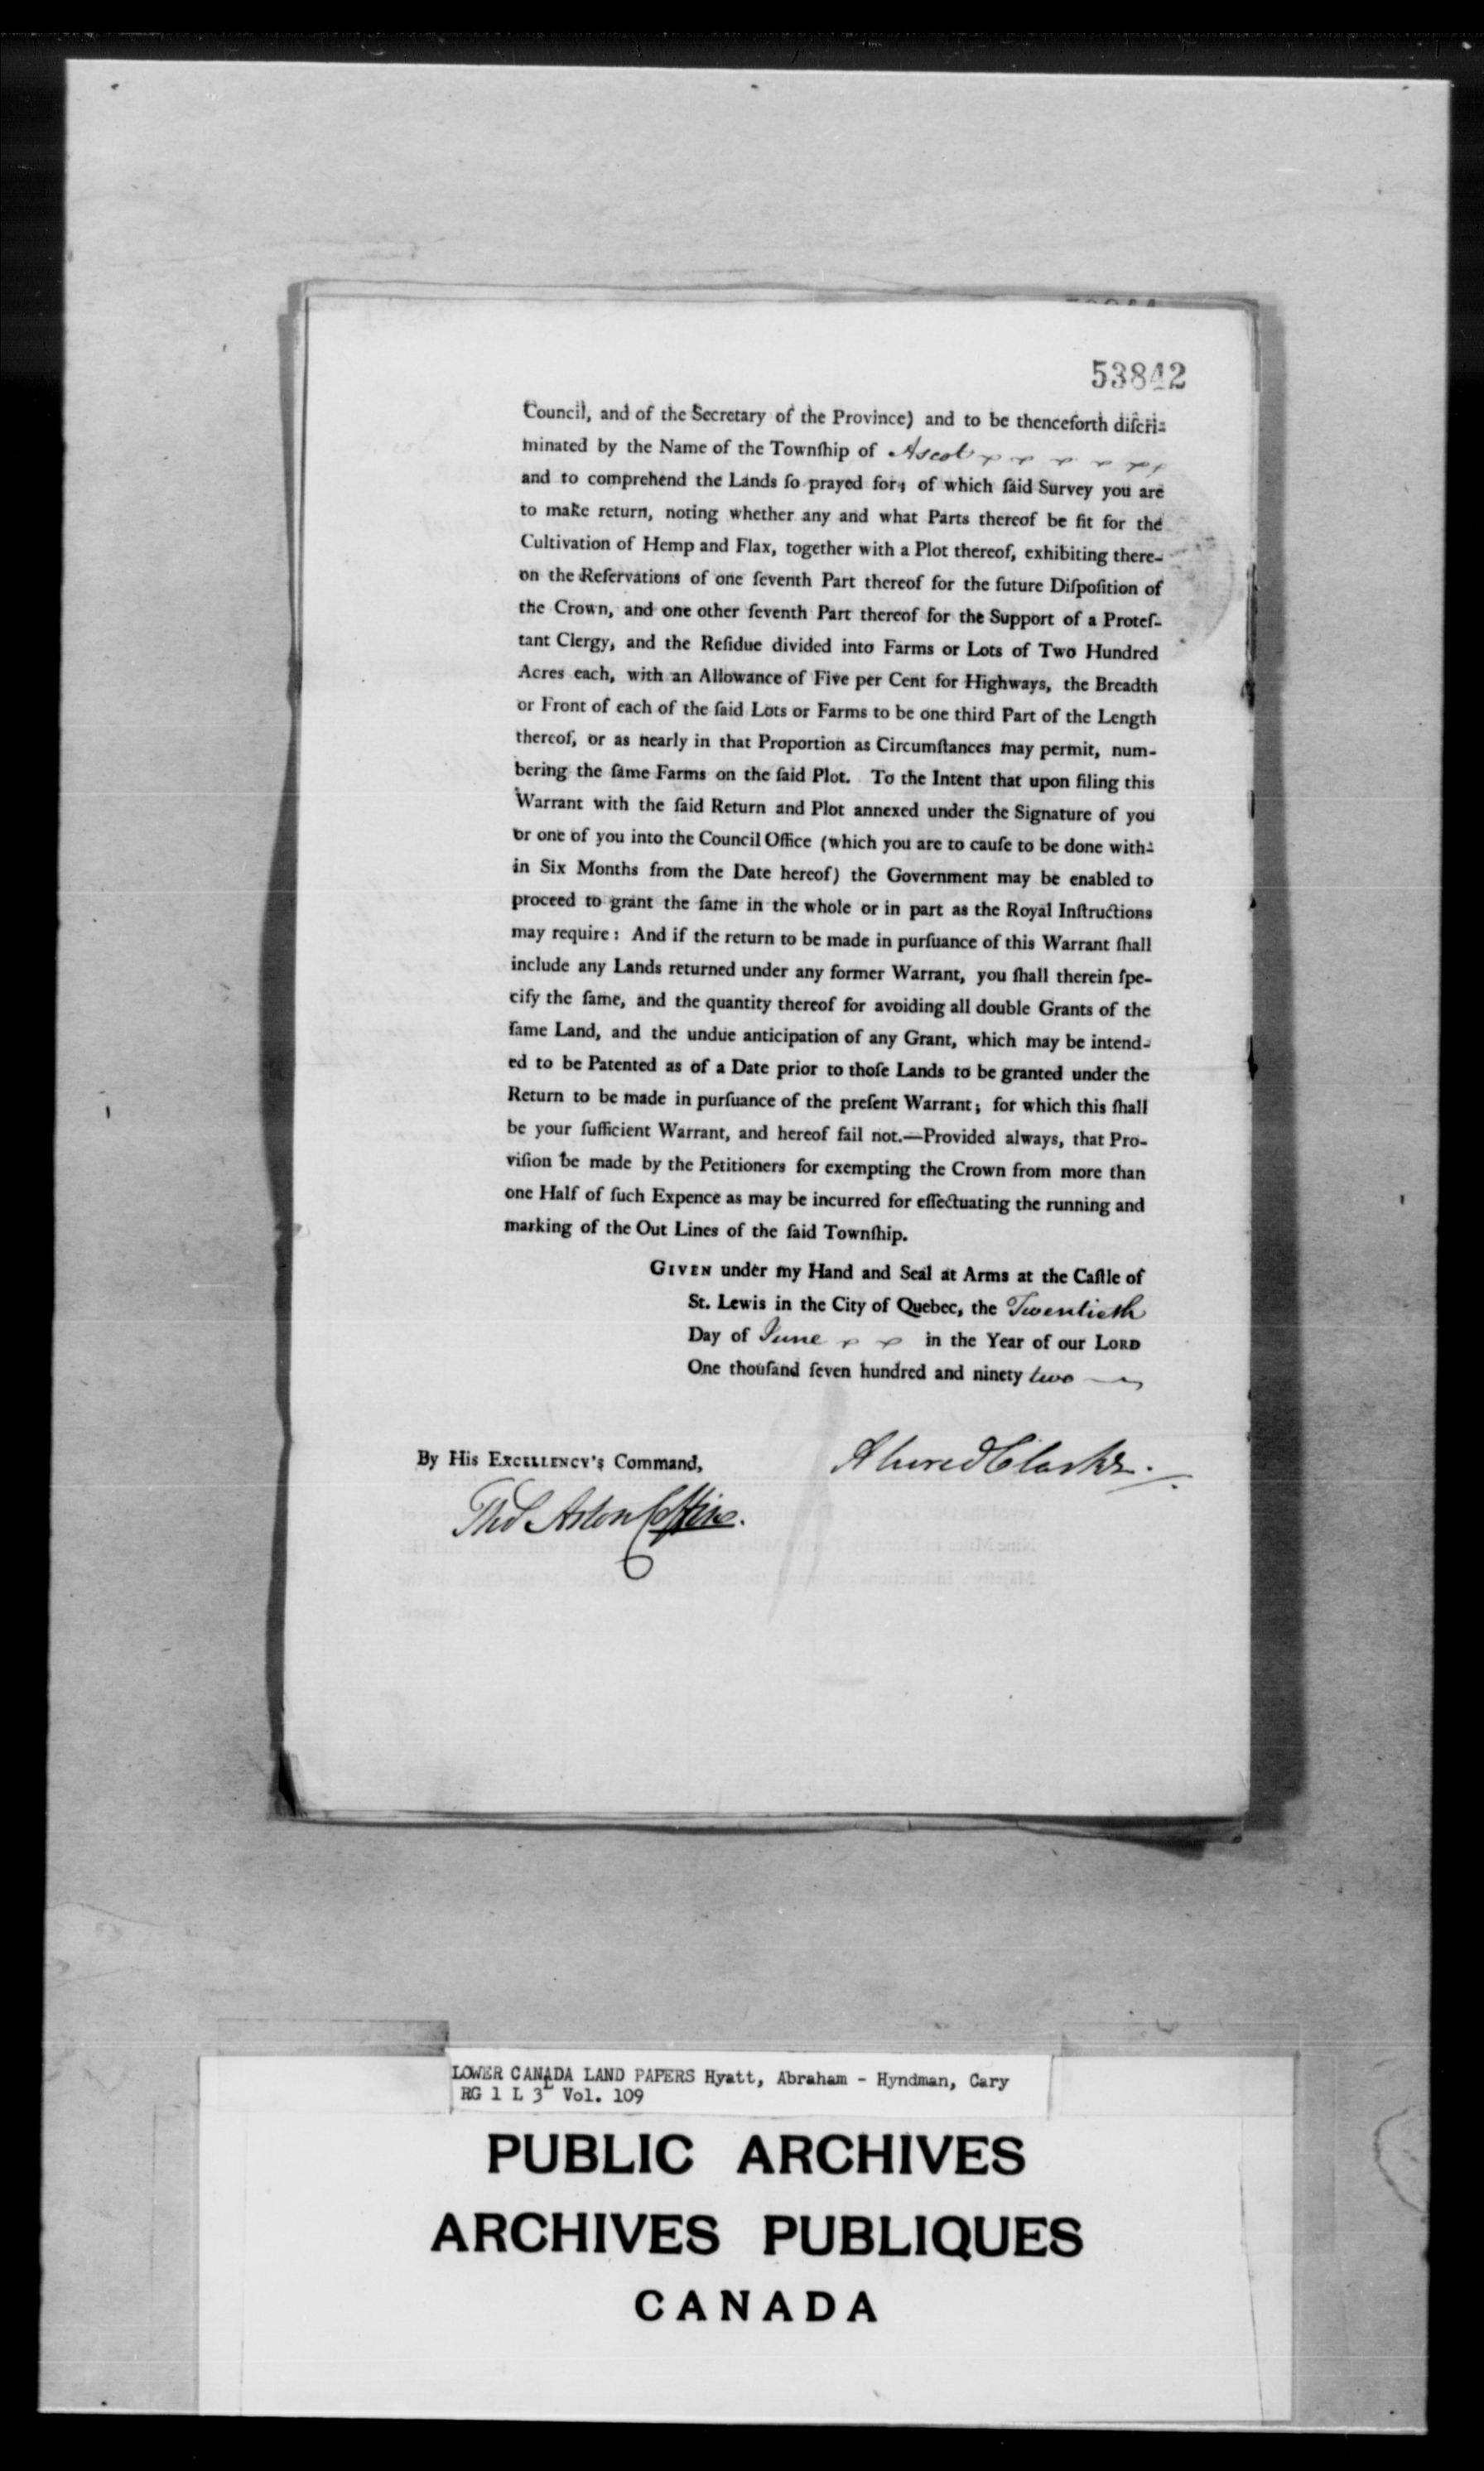 53842
Council, and of the Secretary of the Province) and to be thenceforth diſcri-
minated by the Name of the Townſhip of Ascot
and to comprehend the Lands ſo prayed for; of which ſaid Survey you are
to make return, noting whether any and what Parts thereof be fit for the
Cultivation of Hemp and Flax, together with a Plot thereof, exhibiting there-
on the Reſervations of one ſeventh Part thereof for the future Diſpoſition of
the Crown, and one other ſeventh Part thereof for the Support of a Proteſ-
tant Clergy, and the Reſidue divided into Farms or Lots of Two Hundred
Acres each, with an Allowance of Five per Cent for Highways, the Breadth
or Front of each of the ſaid Lots or Farms to be one third Part of the Length
thereof, or as nearly in that Proportion as Circumſtances may permit, num-
bering the ſame Farms on the ſaid Plot. To the Intent that upon filing this
Warrant with the ſaid Return and Plot annexed under the Signature of you
or one of you into the Council Office (which you are to cauſe to be done with-
in Six Months from the Date hereof) the Government may be enabled to
proceed to grant the ſame in the whole or in part as the Royal Inſtructions
may require: And if the return to be made in purſuance of this Warrant ſhall
include any Lands returned under any former Warrant, you ſhall therein ſpe-
cify the ſame, and the quantity thereof for avoiding all double Grants of the
ſame Land, and the undue anticipation of any Grant, which may be intend-
ed to be Patented as of a Date prior to thoſe Lands to be granted under the
Return to be made in purſuance of the preſent Warrant; for which this ſhall
be your ſufficient Warrant, and hereof fail not.—Provided always, that Pro-
viſion be made by the Petitioners for exempting the Crown from more than
one Half of ſuch Expence as may be incurred for effectuating the running and
marking of the Out Lines of the ſaid Townſhip.
GIVEN under my Hand and Seal at Arms at the Caſtle of
St. Lewis in the City of Quebec, the Twentieth
Day of June in the Year of our LORD
One thouſand ſeven hundred and ninety two
Alured Clarke.
By His EXCELLENCY's Command,
Thos Aston Coffin.
LOWER CANADA LAND PAPERS Hyatt, Abraham - Hyndman, Cary
RG 1 L 3L Vol. 109
PUBLIC ARCHIVES
ARCHIVES PUBLIQUES
CANADA